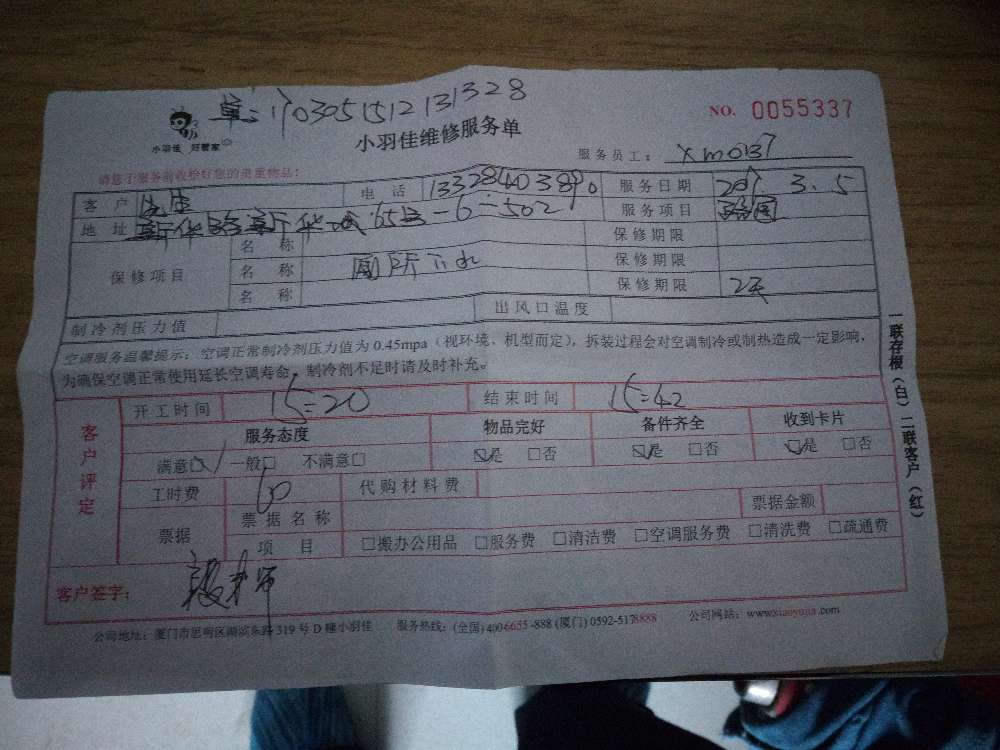 单:170305151213​1328
NO. 0055337
小羽佳 好管家
小羽佳维修服务单
服务员工: xm0137
请您于服务前收恰好您的贵重物品:
客户 先生 电话 服务日期 2017.3.5
地址 新华路新华城65号-6-502 服务项目
保修项目 名称 保修期限
名称 厕所下水 保修期限
名称 保修期限 2天
制冷剂压力值 出风口温度
空调服务温馨提示:空调正常制冷剂压力值为0.45mpa(视环境、机型而定),拆装过程会对空调制冷或制热造成一定影响,
为确保空调正常使用延长空调寿命,制冷剂不足时请及时补充。
客户评定
开工时间 15:20 结束时间 15:42
服务态度 物品完好 备件齐全 收到卡片
满意☑ 一般□ 不满意□ ☑是 □否 ☑是 □否 ☑是 □否
工时费 60 代购材料费
票据 票据名称 票据金额
项目 □搬办公用品 □服务费 □清洁费 □空调服务费 □清洗费 □疏通费
客户签字:
公司地址:厦门市思明区湖滨东路319号D幢小羽佳 服务热线:(全国)400-6655-888(厦门)0592-5178888 公司网站:www.xiaoyujia.com
一联存根(白)二联客户(红)